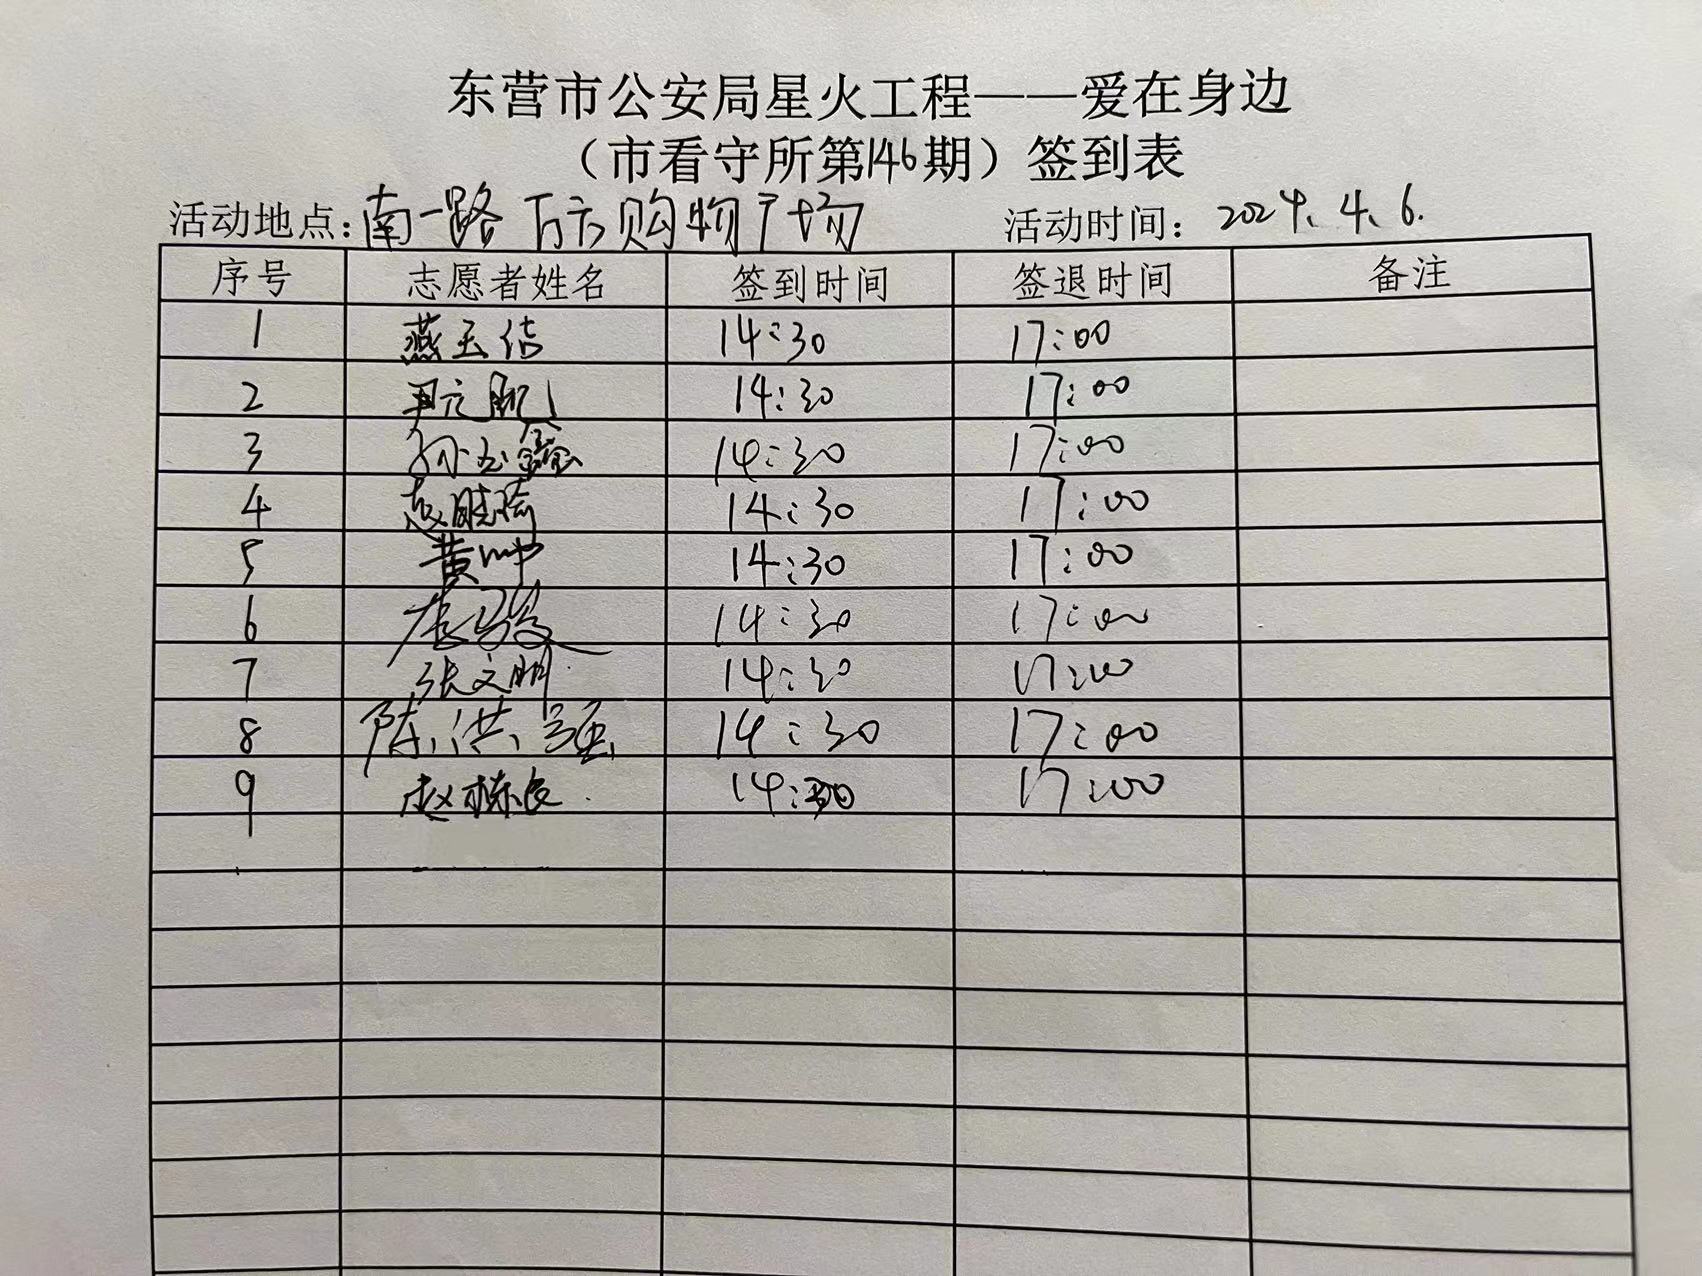 东营市公安局星火工程——爱在身边
（市看守所第146期）签到表
活动地点：南一路万方购物广场 活动时间：2024.4.6.
序号 志愿者姓名 签到时间 签退时间 备注
1 燕玉洁 14:30 17:00
2 尹元 14:30 17:00
3 孙玉 14:30 17:00
4 14:30 17:00
5 黄坤 14:30 17:00
6 14:30 17:00
7 张文明 14:30 17:00
8 陈洪强 14:30 17:00
9 赵栋良 14:30 17:00